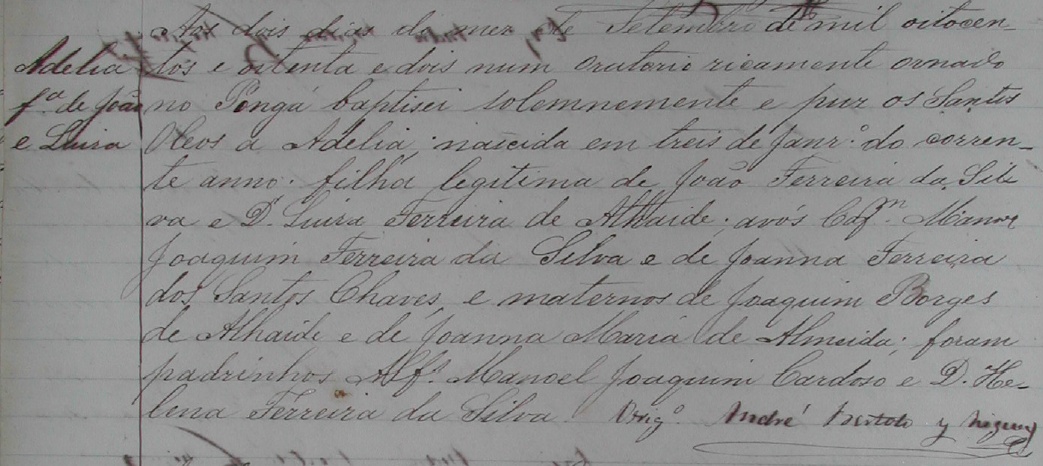 Aos dois dias do mez de Setembro de mil oitocen-
Adelia
fª de João
e Luiza
tos e oitenta e dois num oratorio ricamente ornado
no Pongá baptisei solemnemente e puz os Santos
Oleos a Adelia, nascida em treis de Janrº. do corren-
te anno. filha legitima de João Ferreira da Sil
va e D. Luiza Ferreira de Athaide; avós Capm. Manoel
Joaquim Ferreira da Silva e de Joanna Ferreira
dos Santos Chaves, e maternos de Joaquim Borges
de Athaide e de Joanna Maria de Almeida; foram
padrinhos Alfs. Manoel Joaquim Cardoso e D. He-
lena Ferreira da Silva. Vigº. André